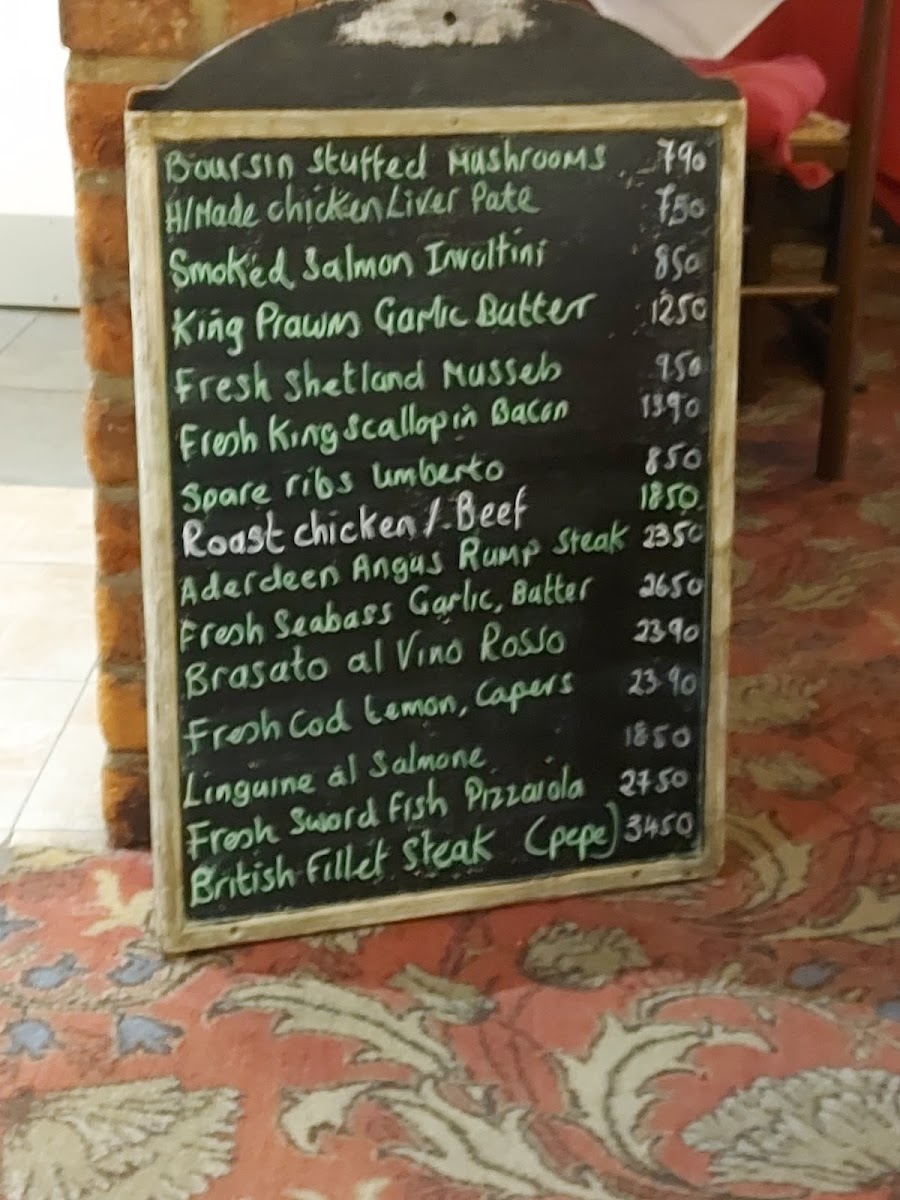 Boursin stuffed Mushrooms 790
H/Made chicken Liver Pate 750
Smoked Salmon Involtini 850
King Prawns Garlic Butter 1250
Fresh Shetland Mussels 950
Fresh King Scallop in Bacon 1390
Spare ribs Umberto 850
Roast chicken / Beef 1850
Aderdeen Angus Rump Steak 2350
Fresh Seabass Garlic, Butter 2650
Brasato al Vino Rosso 2390
Fresh Cod Lemon, Capers 2390
Linguine al Salmone 1850
Fresh Sword Fish Pizzaiola 2750
British Fillet Steak (pepe) 3450